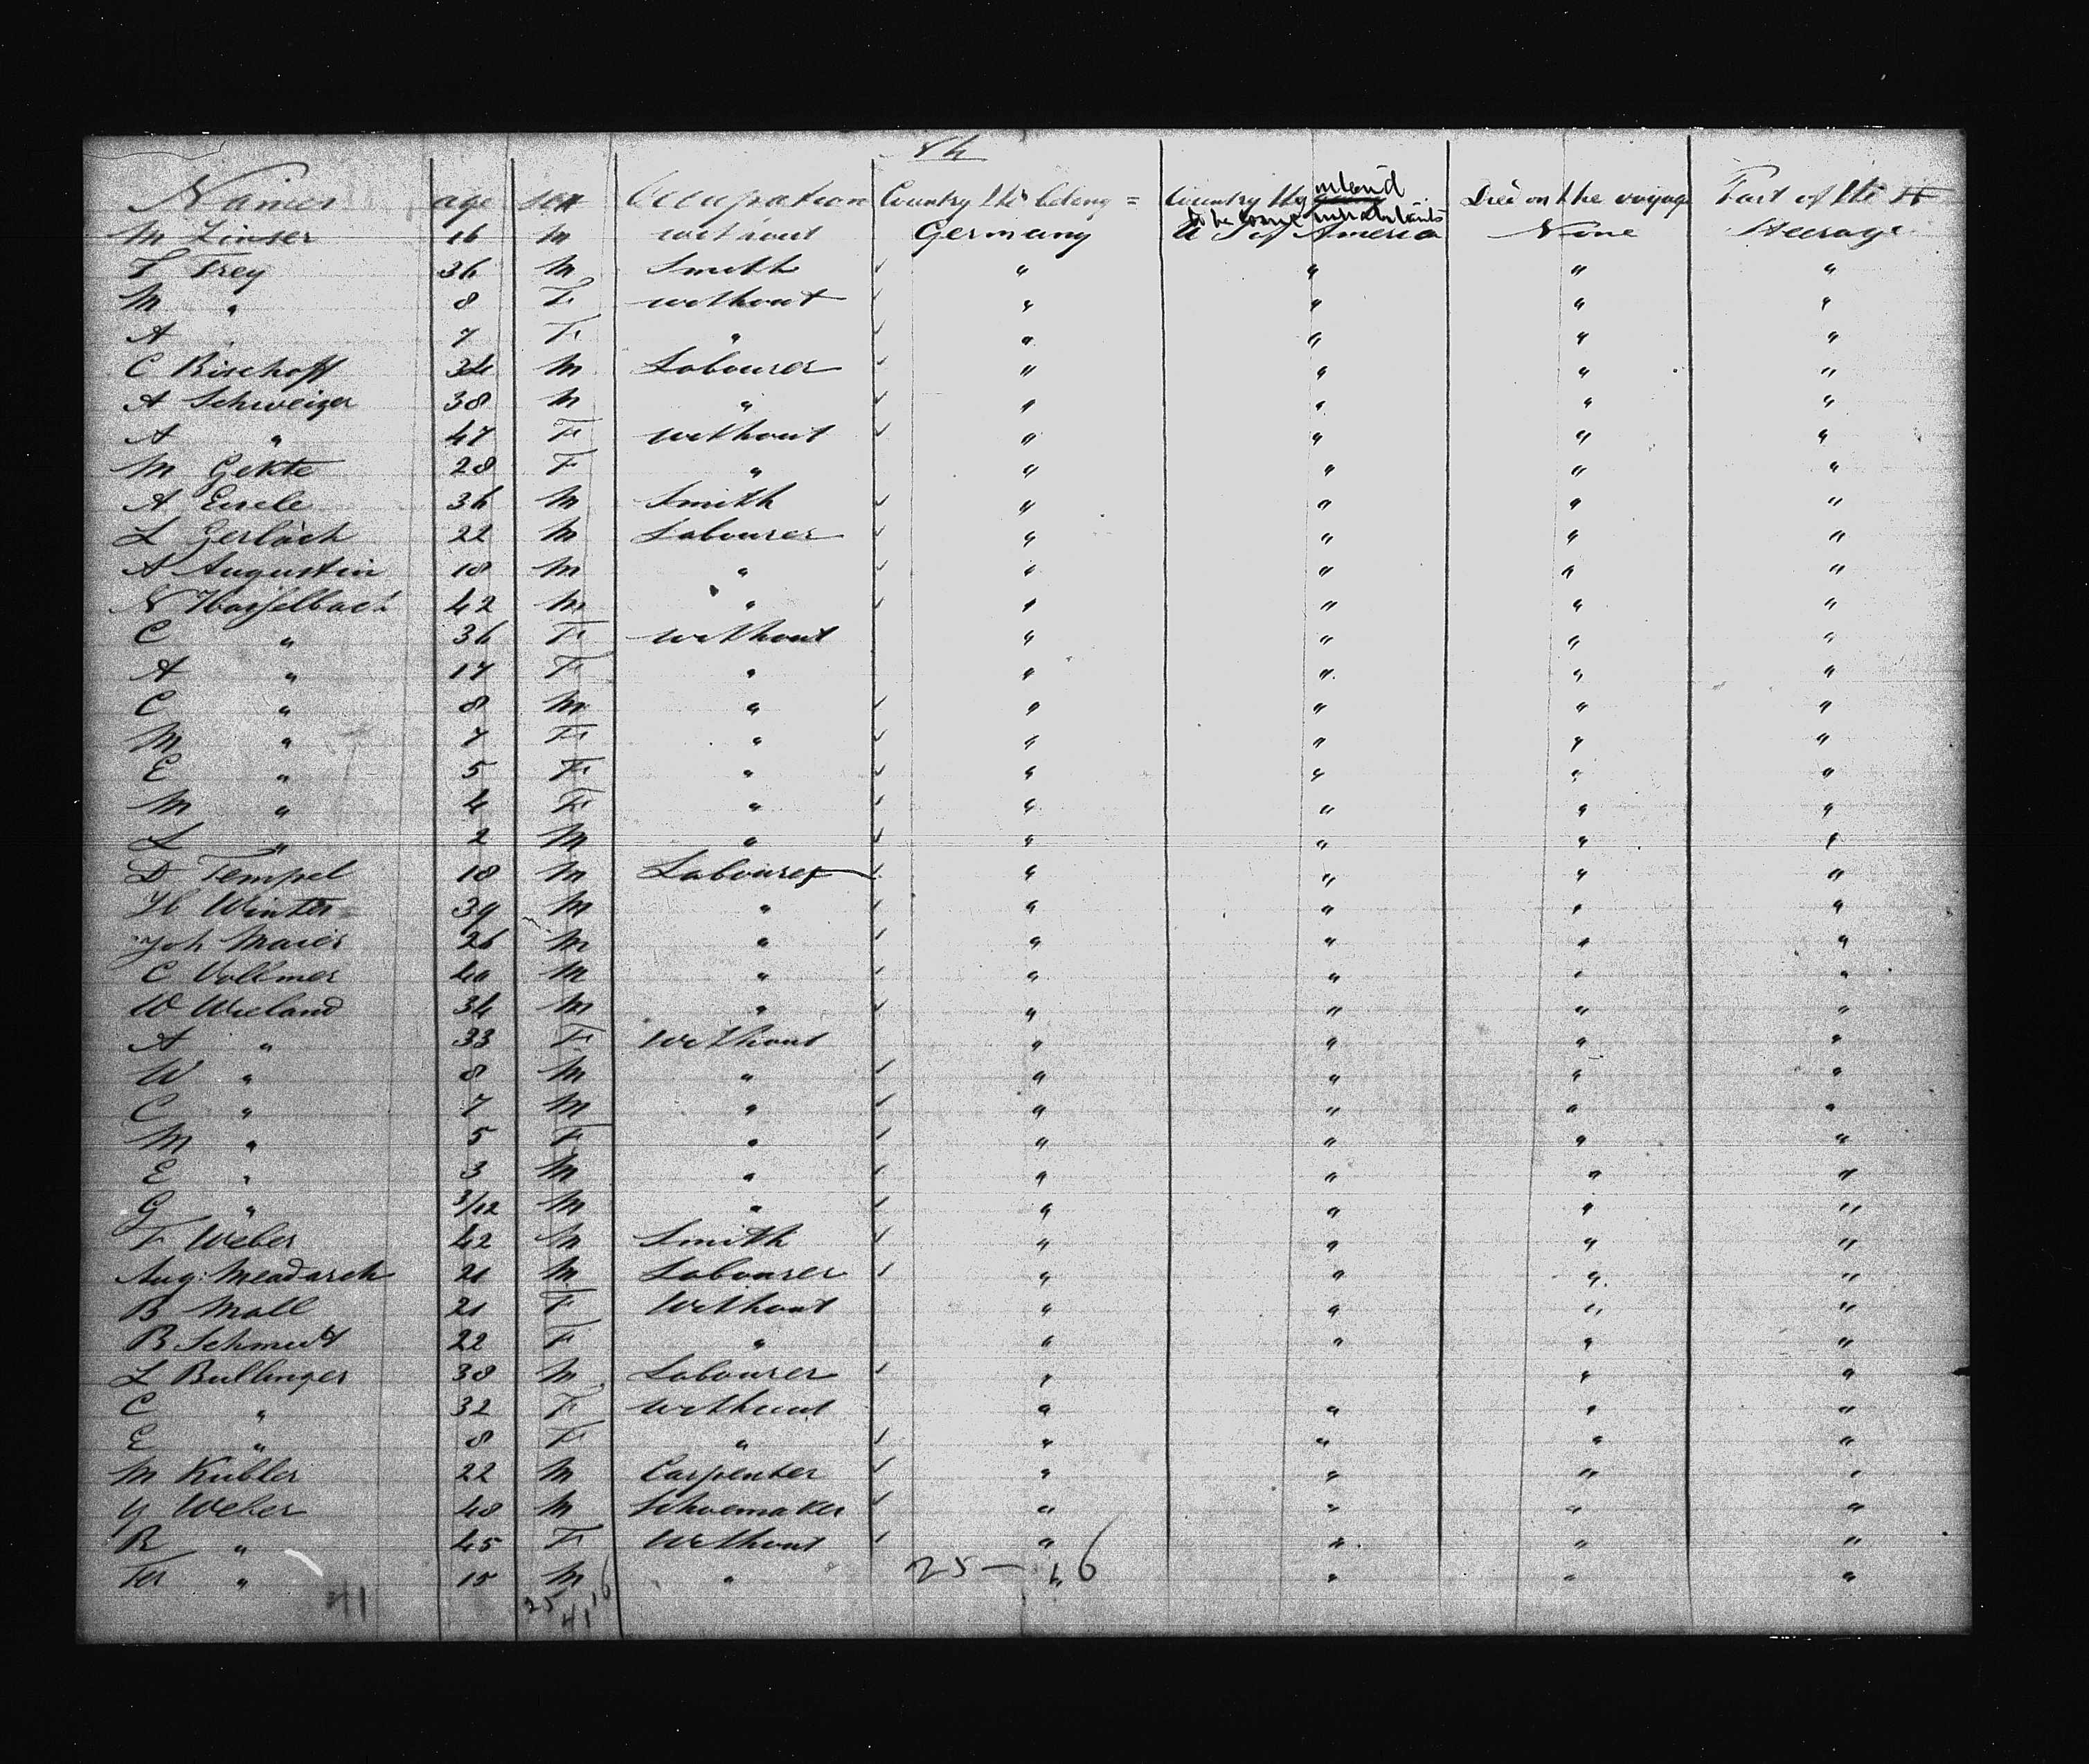 Names age sex Occupation Country the belong = Country they intend to be come inhabitants Died on the voyage Part of the
M Zinser 16 M without Germany U S of America None Steerage
F Frey 36 M Smith " " " "
M " 8 F without " " " "
A 7 F " " " " "
C Bischoff 34 M Labourer " " " "
A Schweizer 38 M " " " " "
A " 47 F without " " " "
M Gekte 28 F " " " " "
A Eisele 36 M Smith " " " "
L Gerlach 22 M Labourer " " " "
A Augustin 18 M " " " " "
N Hasselbach 42 M " " " " "
C " 36 F without " " " "
A " 17 F " " " " "
C " 8 M " " " " "
M " 7 F " " " " "
E " 5 F " " " " "
M " 4 F " " " " "
L " 2 M " " " " "
D Tempel 18 M Labourer " " " "
H Winter 39 M " " " " "
Joh Maier 26 M " " " " "
C Vollmer 40 M " " " " "
W Wieland 34 M " " " " "
A " 33 F Without " " " "
W " 8 M " " " " "
C " 7 M " " " " "
M " 5 F " " " " "
E " 3 M " " " " "
G " 3/12 M " " " " "
F Weber 42 M Smith " " " "
Aug: Meadarch 21 M Labourer " " " "
B Moll 21 F Without " " " "
B Schmidt 22 F " " " " "
L Bullinger 38 M Labourer " " "
C " 32 F without " " " "
E " 8 F " " " " "
M Kubler 22 M Carpenter " " " "
G Weber 48 M Schoemaker " " " "
R " 45 F Without " " " "
" 15 M " 25 — 16 " " "
41 25 16
41